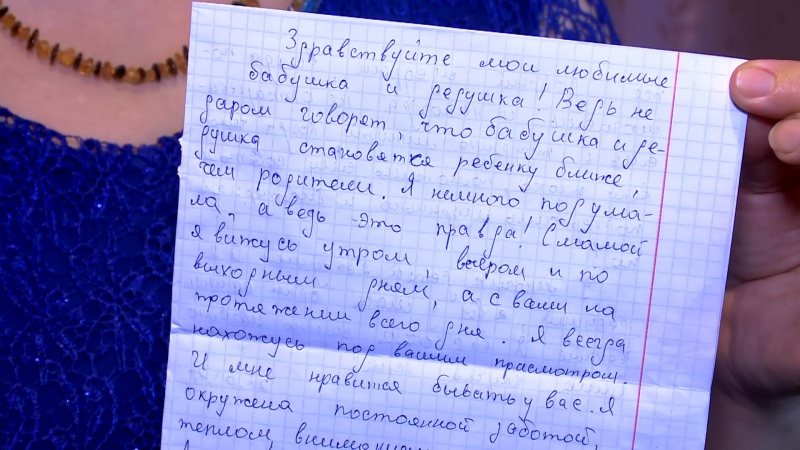 Здравствуйте мои любимые
бабушка и дедушка! Ведь не
даром говорят, что бабушка и де-
душка становятся ребенку ближе,
чем родители. Я немного подума-
ла, а ведь это правда! С мамой
я вижусь утром, вечером и по
выходным дням, а с вами на
протяжении всего дня. Я всегда
нахожусь под вашим присмотром.
И мне нравится бывать у вас. Я
окружена постоянной заботой,
теплом,